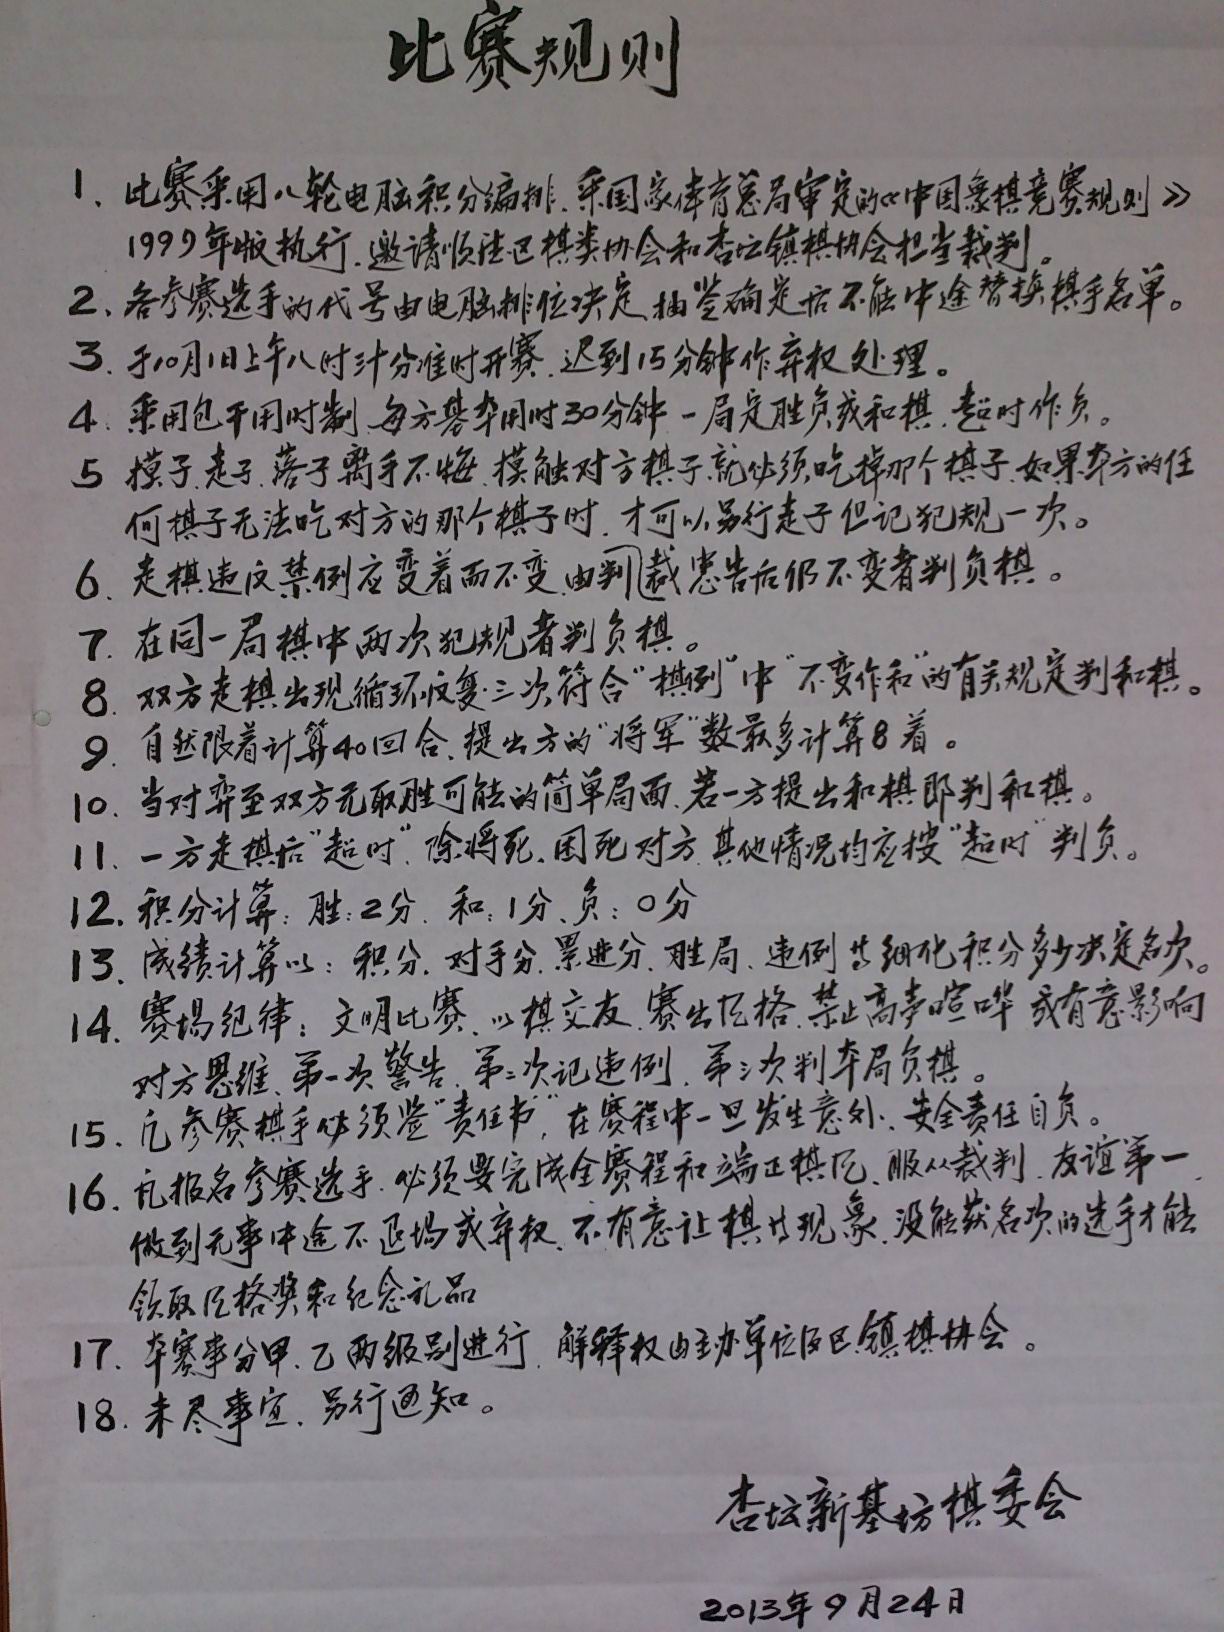 比赛规则
1、比赛采用八轮电脑积分编排、采国家体育总局审定的《中国象棋竞赛规则》
1999年版执行、邀请顺德区棋类协会和杏坛镇棋协会担当裁判。
2、各参赛选手的代号由电脑排位决定、抽签确定后不能中途替换棋手名单。
3、于10月1日上午八时卅分准时开赛、迟到15分钟作弃权处理。
4、采用包干用时制、每方基本用时30分钟、一局定胜负或和棋、超时作负。
5 摸子走子、落子离手不悔、摸触对方棋子就必须吃掉那个棋子、如果本方的任
何棋子无法吃对方的那个棋子时、才可以另行走子但记犯规一次。
6、走棋违反禁例应变着而不变、由判裁 告后仍不变者判负棋。
7、在同一局棋中两次犯规者判负棋。
8、双方走棋出现循环反复三次符合“棋例”中“不变作和”的有关规定判和棋。
9、自然限着计算40回合、提出方的“将军”数最多计算8着。
10、当对弈至双方无取胜可能的简单局面、若一方提出和棋即判和棋。
11、一方走棋后“超时”、除将死、困死对方、其他情况均应按“超时”判负。
12、积分计算：胜：2分、和：1分、负：0分
13、成绩计算以：积分、对手分、累进分、胜局、违例等细化积分多少决定名次。
14、赛场纪律：文明比赛、以棋交友、赛出风格、禁止高声喧哗或有意影响
对方思维、第一次警告、第二次记违例、第三次判本局负棋。
15、凡参赛棋手必须签“责任书”，在赛程中一旦发生意外、安全责任自负。
16、凡报名参赛选手、必须要完成全赛程和端正棋风、服从裁判、友谊第一、
做到无事中途不退场或弃权、不有意让棋等现象、没能获名次的选手才能
领取风格奖和纪念礼品
17、本赛事分甲、乙两级别进行、解释权由主办单位及 镇棋协会。
18、未尽事宜、另行通知。
杏坛新基坊棋委会
2013年9月24日